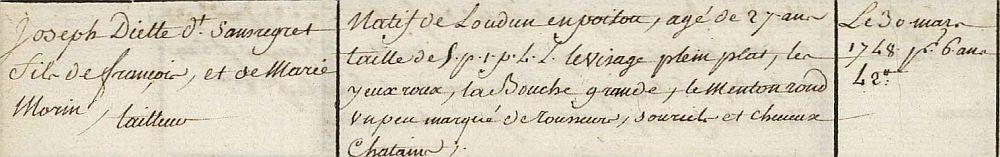 Joseph Diette dt. Sansregret
fils de françois, et de Marie
Morin, tailleur
Natif de Loudun en poitou, agé de 27 ans
taille de 5. p. 1. p. 4. L. le visage plein plat, les
yeux roux, la Bouche grande, le Menton rond
un peu marqué de rousseurs, sourcils et cheveux
Chatains,
Le 30 mars
1748 pr. 6 ans
42tt